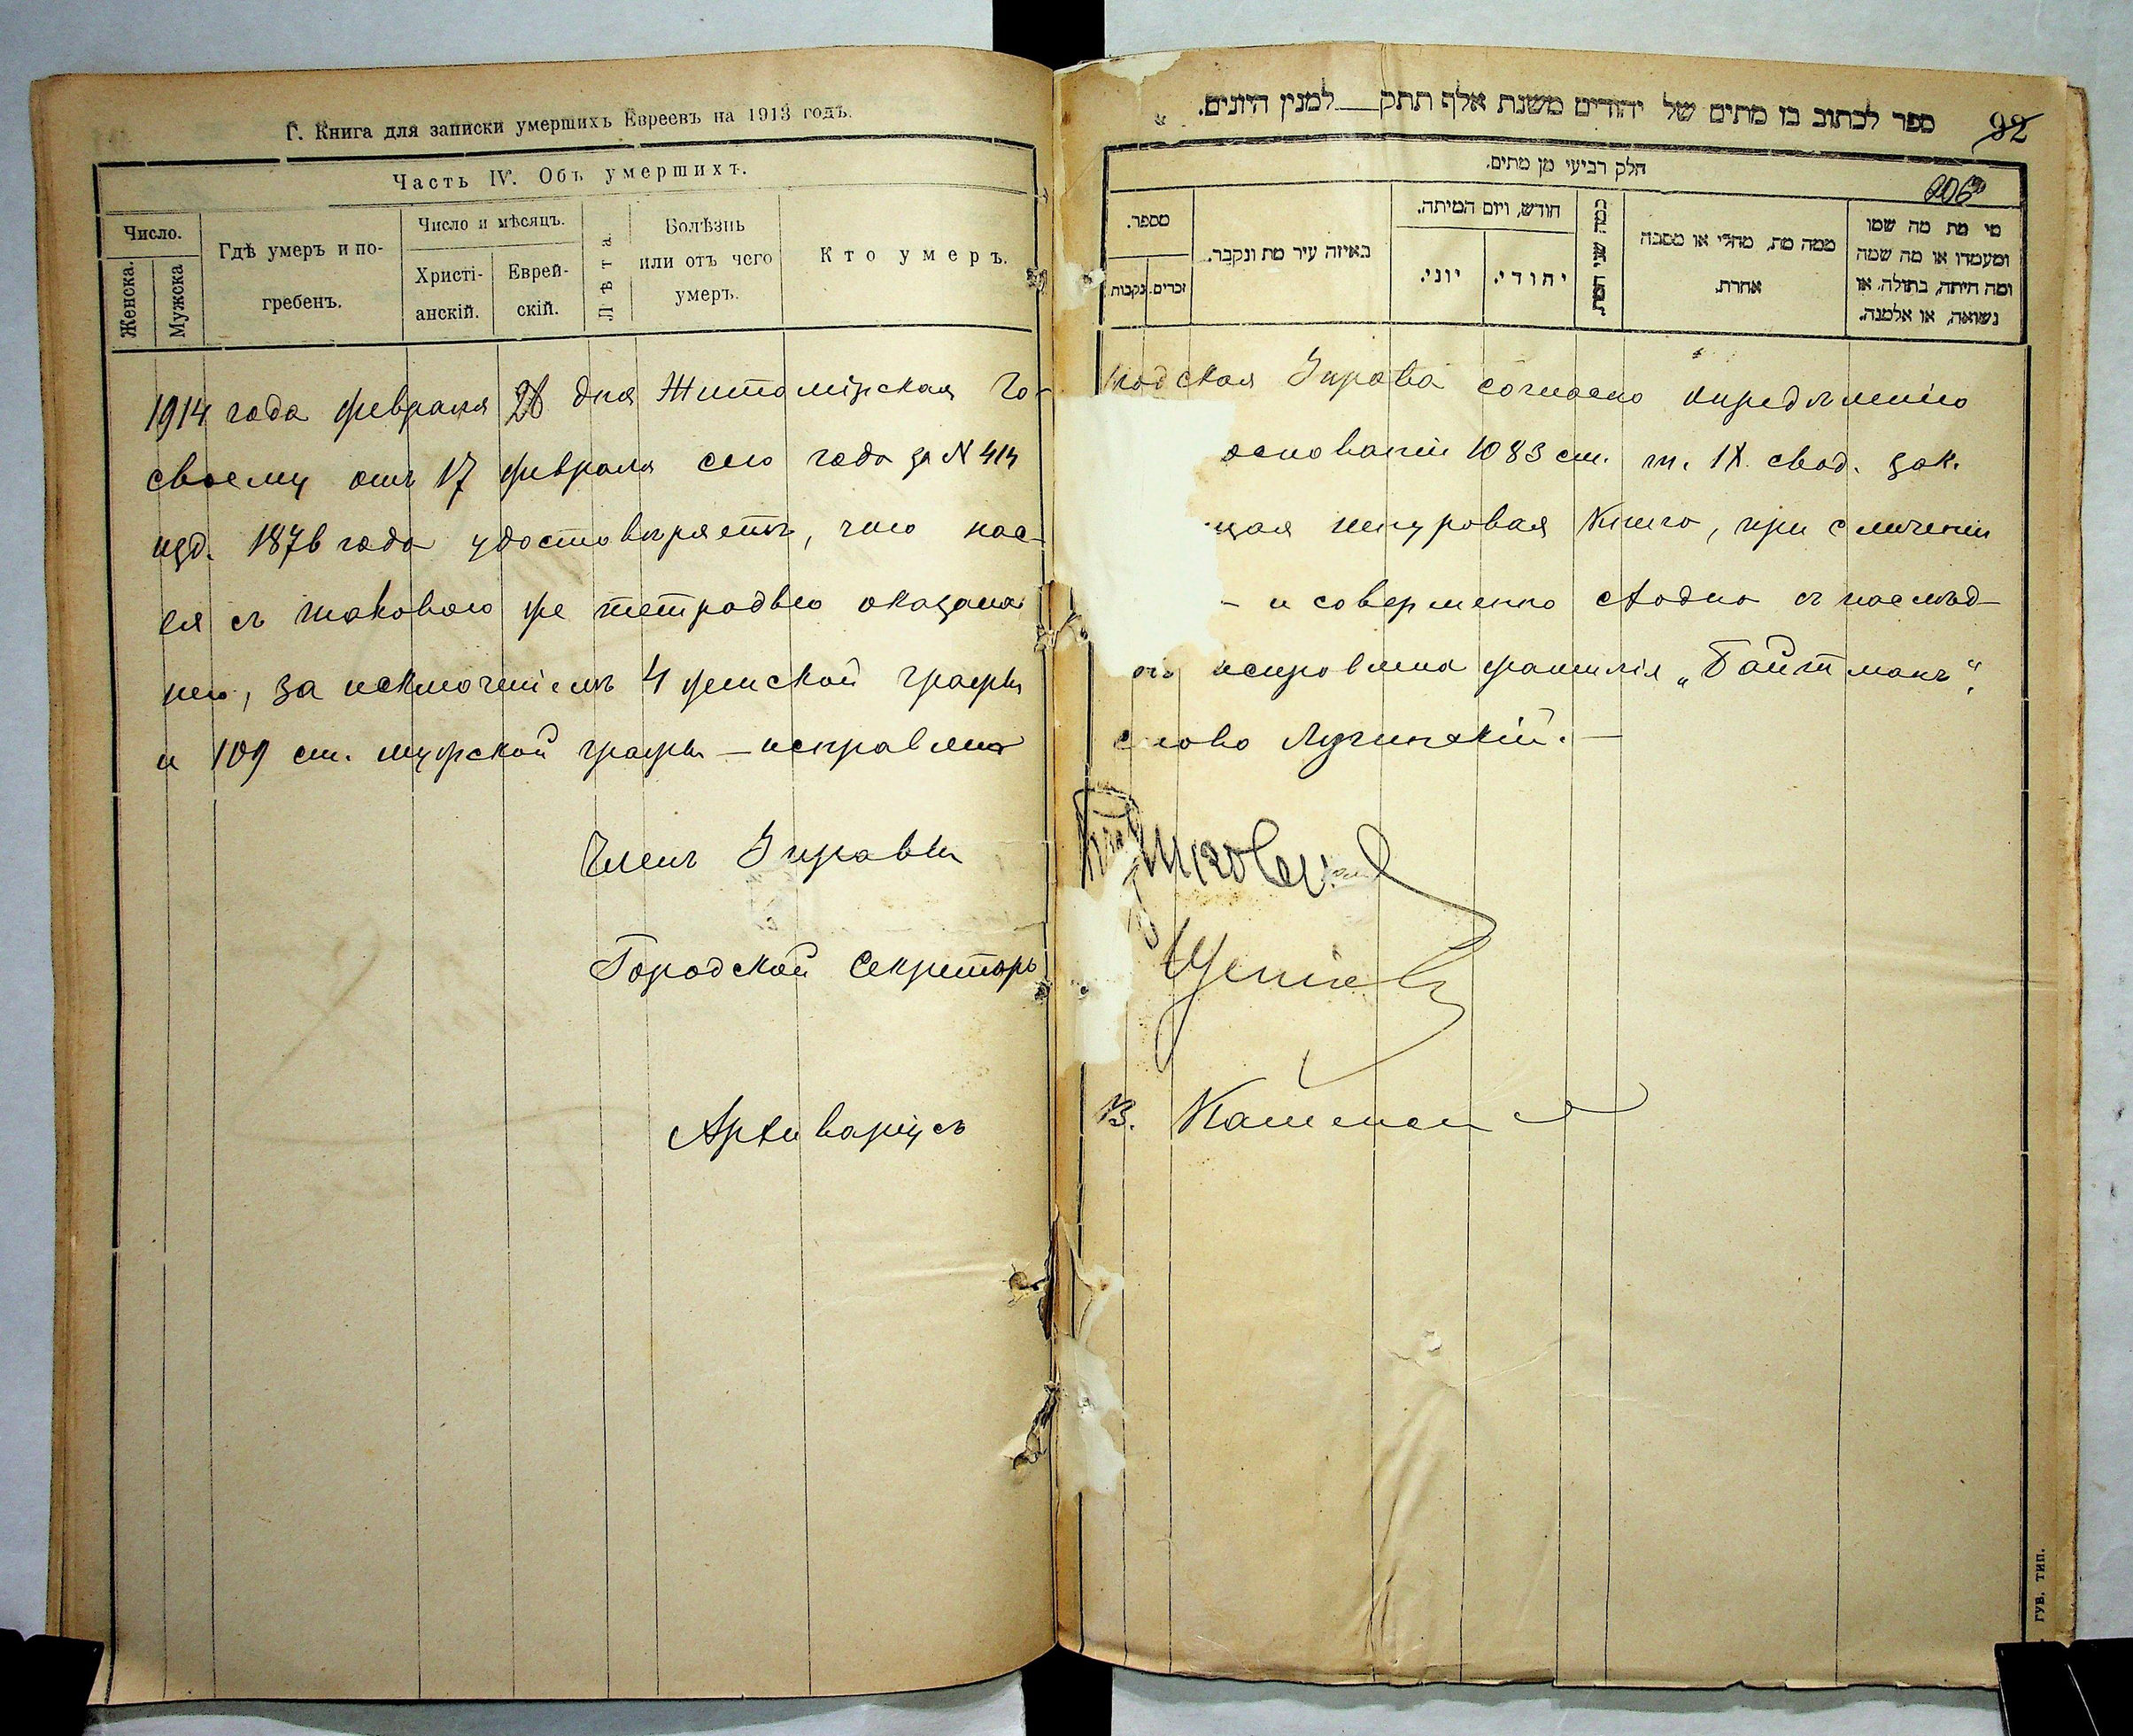 Г. Книга для записки умершихъ Евреевъ на 1913 годъ.
Часть IV. Объ умершихъ.
Число.
Женска.
Мужска
Гдѣ умеръ и по-
гребенъ.
Число и мѣсяцъ.
Христі-
анскій.
Еврей-
скій.
Лѣта.
Болѣзнь
или отъ чего
умеръ.
Кто умеръ.
1914 года февраля 28 дня Житомірская Го-
своему отъ 17 февраля сего года за № 414
изд. 1876 года удостовѣряетъ, что нас-
ея съ таковою же тетрадью оказана
нею, за исключеніемъ 4 женской графы
и 109 ст. мужской графы – исправлено
Членъ Управы
Городской Секретарь
Архиваріусъ
ספר לכתוב בו מתים של יהודים משנת אלף תתק למנין היונים.
92
חלק רביעי מן מתים.
206
מספר.
נקבות
זכרים.
באיזה עיר מת ונקבר.
חודש, ויום המיתה.
יוני.
יהודי.
כמה שני המת.
ממה מת, מחלי או מסבה
אחרת.
מי מת מה שמו
ומעמדו או מה שמה
ומה היתה, בתולה, או
נשואה, או אלמנה.
родская Управа согласно опредѣленію
основаніи 1083 ст. т. IX. свод. зак.
щая шнуровая книга, при сличеніи
– и совершенно сходно съ послѣд-
исправлена фамилія „Байтманъ“,
слово Лучинскій. –
В.
ГУБ. ТИП.